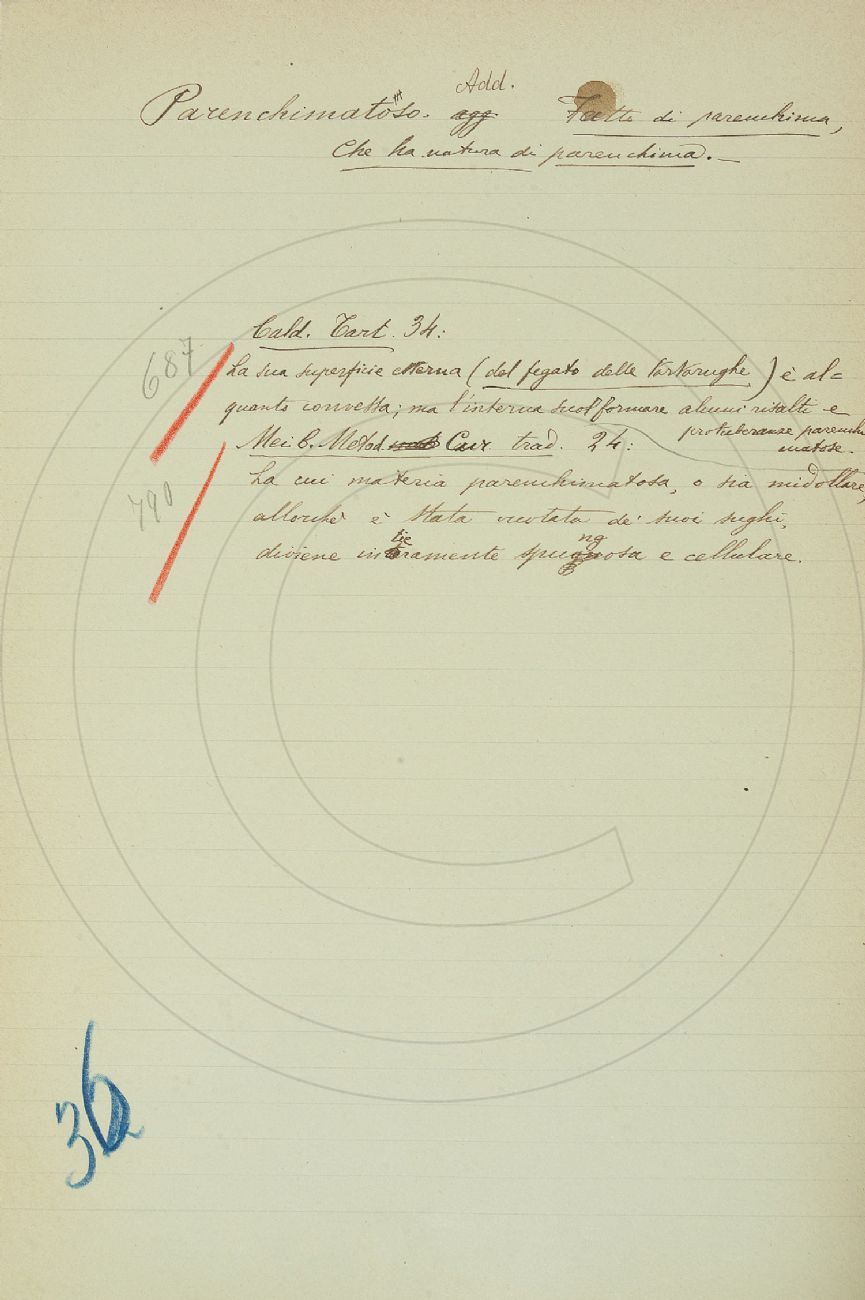 Add.
Parenchimatoso. agg Fatto di parenchima,
Che ha natura di parenchima. —
Cald. Tart. 34:
687
La sua superficie esterna (del fegato delle tartarughe) è al=
quanto convessa; ma l'interna suol formare alcuni risalti e
protuberanze parenchi
matose.
Mei C. Metod Cur. trad. 24:
790
La cui materia parenchimatosa, o sia midollare,
allorchè è stata vuotata de' suoi sughi,
diviene intieramente spungosa e cellulare.
36